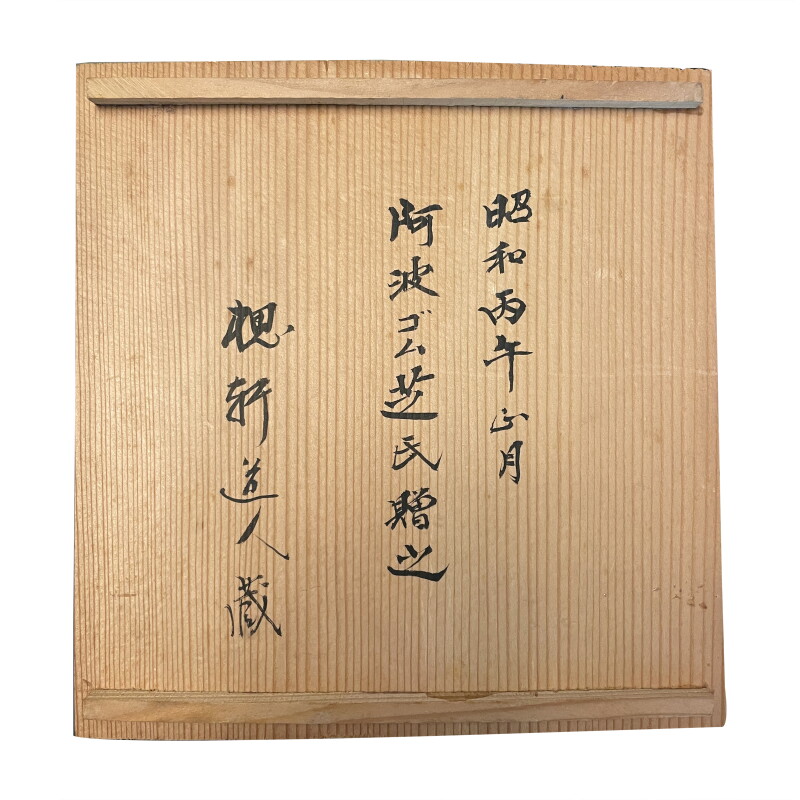 昭和丙午正月
阿波ゴム芝氏贈之
槐軒道人蔵